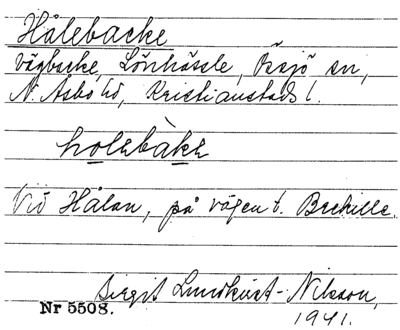 Hålebacke
vägbacke, Lönhässle, Össjö sn,
N. Åsbo hd, Kristianstads l.
holebàke
Vid Hålan, på vägen t. Backille.
Birgit Lundkvist-Nilsson,
Nr 5508.
1941.